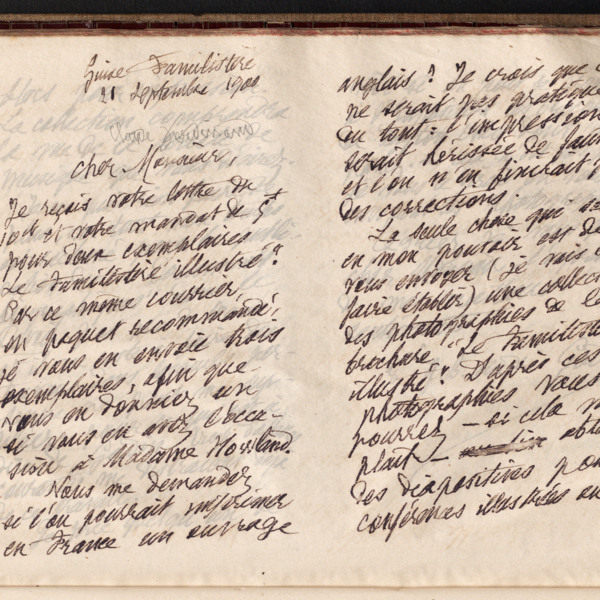 Guise Familistère
21 Septembre 1900
Cher Monsieur,
Je reçois votre lettre du
10 et et votre mandat de 5 f
pour deux exemplaires
Le Familistère illustré ?
Par ce même courrier,
en paquet recommandé,
je vous en envoie trois
exemplaires, afin que
vous en donniez un
si vous en avez l'occa-
sion à Madame Howland.
Vous me demandez
si l'on pourrait imprimer
en France un ouvrage
anglais ? Je crois que
ne serait pas pratique
du tout : l'impression
serait hérissée de
et l'on n'en finirait
des corrections.
La seule chose qui
en mon pouvoir est de
vous envoyer (je vais
faire établir) une
des photographies de
brochure "Le
illustré". D'après ces
photographies vous
pourrez – si cela
plait –
des diapositives
conférences illustrées